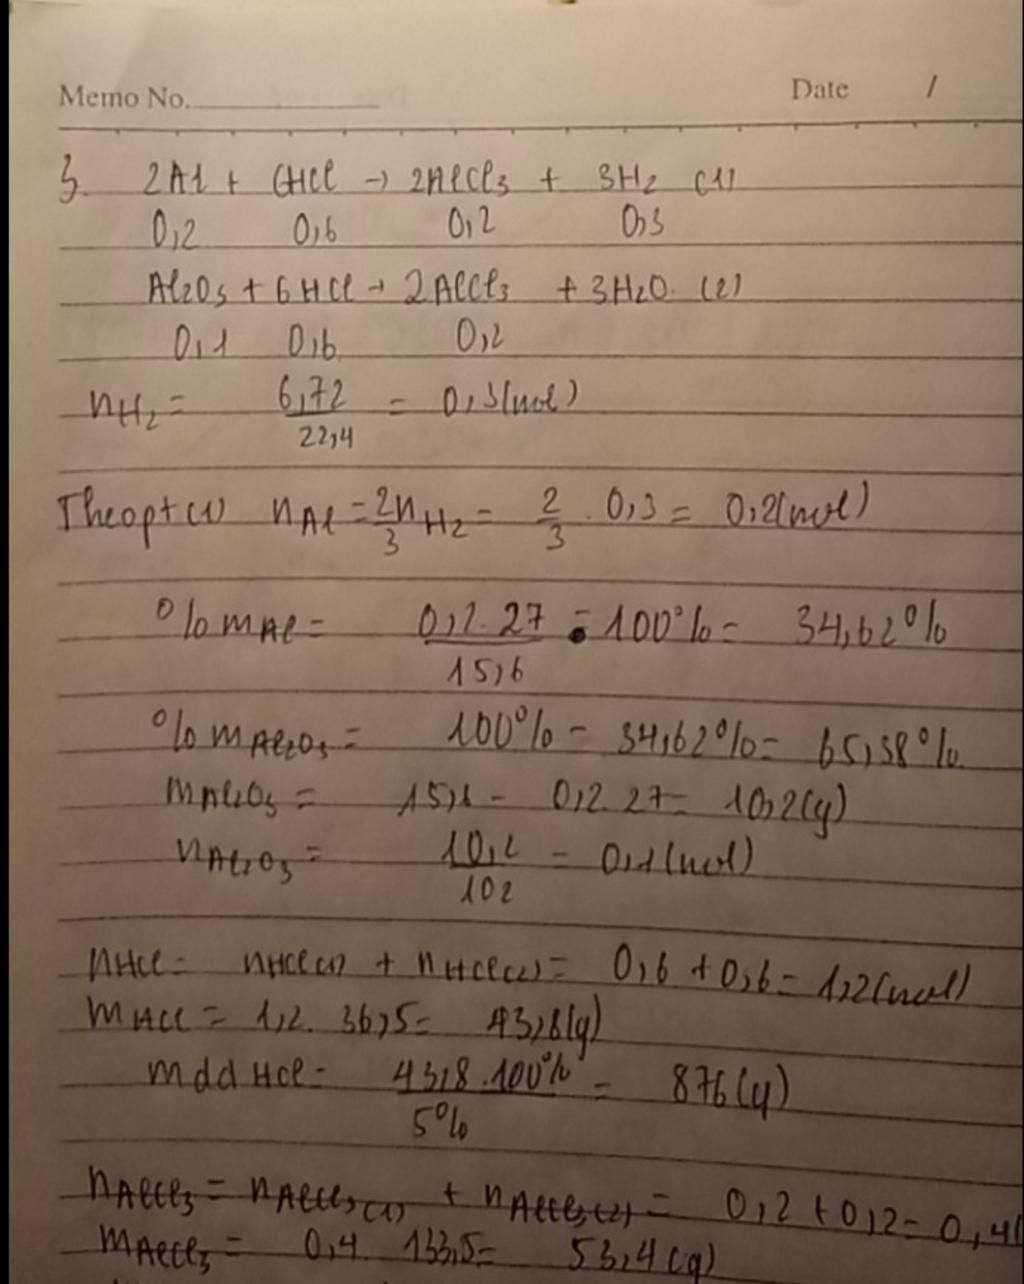 Memo No. Date /
3. 2Al + 6HCl → 2AlCl3 + 3H2 (1)
0,2 0,6 0,2 0,3
Al2O3 + 6HCl → 2AlCl3 + 3H2O. (2)
0,1 0,6 0,2
nH2 = 6,72/22,4 = 0,3(mol)
Theo pt (1) nAl = 2/3 nH2 = 2/3 . 0,3 = 0,2(mol)
%mAl = 0,2.27/15,6 . 100% = 34,62%
%mAl2O3 = 100% - 34,62% = 65,38%
mAl2O3 = 15,6 - 0,2.27 = 10,2(g)
nAl2O3 = 10,2/102 = 0,1(mol)
nHCl = nHCl(1) + nHCl(2) = 0,6 + 0,6 = 1,2(mol)
mHCl = 1,2. 36,5 = 43,8(g)
mdd HCl = 43,8.100%/5% = 876(g)
nAlCl3 = nAlCl3(1) + nAlCl3(2) = 0,2 + 0,2 = 0,4(
mAlCl3 = 0,4. 133,5 = 53,4(g)